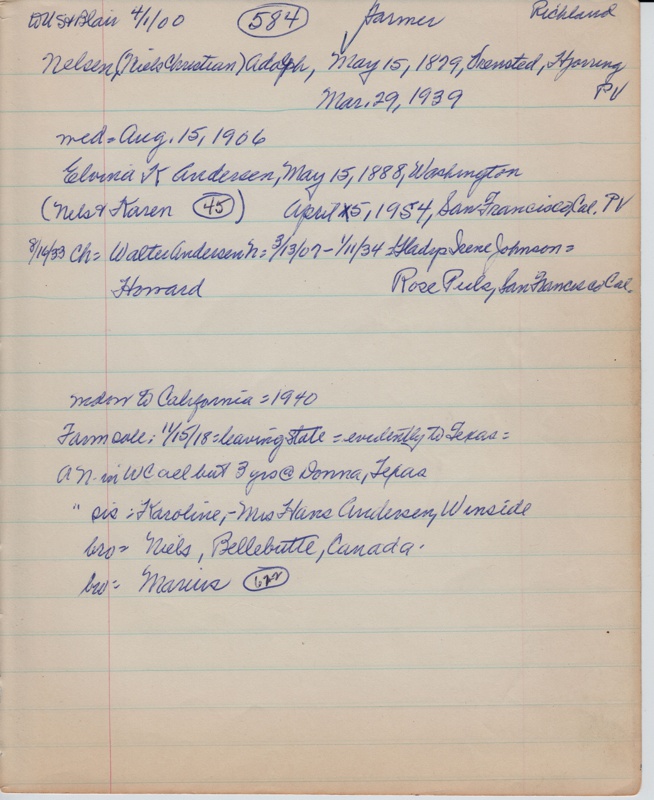 to US & Blair 4/1/00 584 Farmer Richland
Nelsen, (Niels Christian) Adolph, May 15, 1879, Hjorring
Mar. 29, 1939 PV
med = Aug. 15, 1906
Elvina K Andersen, May 15, 1888, Washington
(Nels & Karen 45) April 5, 1954, San Francisco, Cal. PV
8/14/33 Ch = Walter Andersen N = 3/13/07 - 1/11/34 = Gladys Irene Johnson =
Howard Rose Puls, San Francisco Cal.
to California = 1940
Farm sale: 11/15/18 = leaving state = evidently to Texas =
A N. in WC all but 3 yrs @ Donna, Texas
" sis: Karoline, - Mrs Hans Andersen, Winside
bro = Niels, Bellebutte, Canada.
bro = Marius